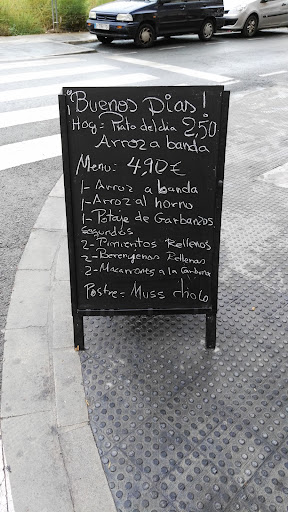 ¡Buenos Dias!
Hoy= Plato del día 2,50
Arroz a banda
Menu: 4,90€
1- Arroz a banda
1- Arroz al horno
1- Potaje de Garbanzos
Segundos
2- Pimientos Rellenos
2- Berengenas Rellenas
2- Macarrones a la Carbonara
Postre= Muss choco